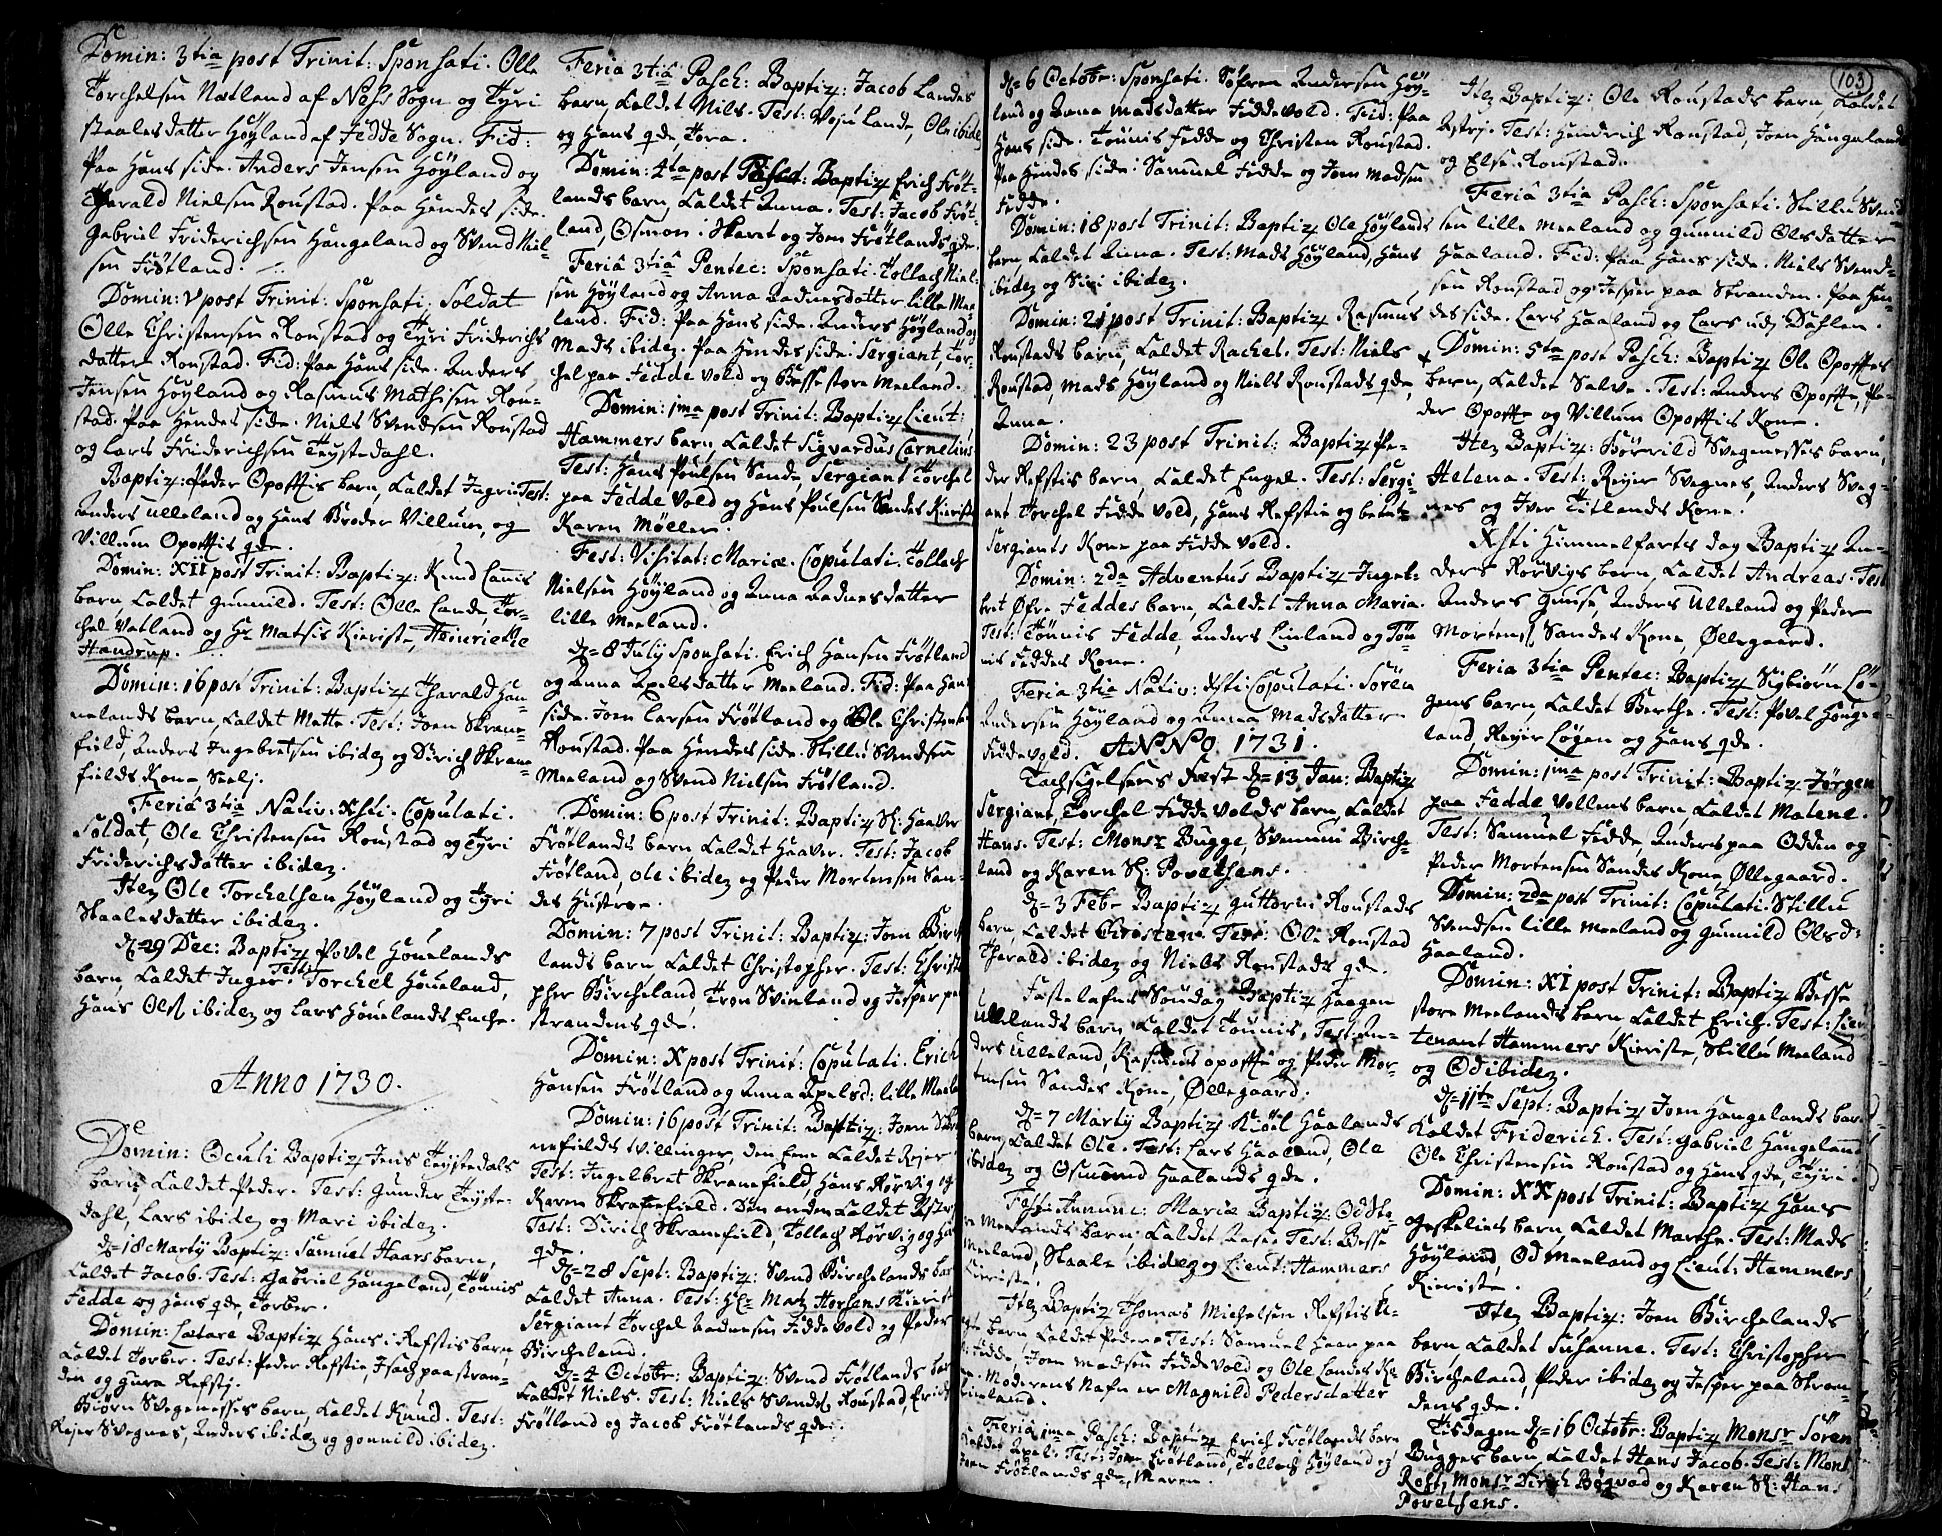 Domin: 3tia post Trinit: Sponsati. Olle
Torchelsen Netland af Nehs Sogn og Tyri
Staalesdatter Höyland af Fedde Sogn. Fid:
Paa Hans side. Anders Jensen Höyland og
Tharald Nielsen Ronstad. Paa Hendes side.
Gabriel Friderichsen Hangeland og Svend Niel-
sen Frötland.
Domin: V post Trinit: Sponsati. Soldat
Olle Christensen Ronstad og Tyri Friderichs
datter Ronstad. Fid: Paa Hans side. Anders
Jensen Höyland og Rasmus Mathisen Ron-
stad. Paa Hendes side. Niels Svendsen Ronstad
og Lars Friderichsen Teystedahl.
Baptiz: Peder Opofftis barn, kaldet Ingri Test:
Anders Ulleland og Hans Broder Villum, og
Villum Opofftis qde.
Domin: XII post Trinit: Baptiz: Knud
barn, kaldet Gunnild. Test: Olle Lande, Tor-
chel Vatland og Hr Matsis Kieriste, Heinriette
Handrup.
Domin: 16 post Trinit: Baptiz Tharald Han-
nelands barn, kaldet Mette. Test: Joen Skrane-
field, Anders Ingebretsen ibidem og Dirich Skrane-
fields Kone, Seelj.
Feria 3tia Nativ: Xsti. Copulati.
Soldat, Ole Christensen Ronstad og Tyri
Friderichsdatter ibidem.
Item Ole Torchelsen Höyland og Tyri
Staalesdatter ibidem.
D= 29 Dec: Baptiz Povel Houelands
barn, kaldet Inger. Test: Torchel Houeland,
Hans Ols ibidem og Lars Houelands Enche.
Anno 1730.
Domin: Oculi Baptiz Jens Teystedals
barn kaldet Peder. Test: Gunder Teyste-
dahl, Lars ibidem og Mari ibidem.
D= 18 Martij Baptiz: Samuel Haars barn,
kaldet Jacob. Test: Gabriel Hangeland, Tönnis
Fedde og Hans qde, Torber.
Domin: Lætare Baptiz Hans i Refstis barn,
kaldet Torber. Test: Peder Refstie, Isach paa stran-
den og Gura Refstj.
Biörn Svegenessis barn, kaldet Knud. Test:
Rejer Svegnes, Anders ibidem og Gonnild ibidem.
Feria 3tiâ Pasch: Baptiz: Jacob Landes
barn, kaldet Nils. Test: Lande, Ole ibidem
og Hans qde, Tora.
Domin: 4ta post Pasch: Baptiz Erich Fröt-
lands barn, kaldet Anna. Test: Jacob Fröt-
land, Osmon i Skaret og Joen Frötlands qde.
Feriâ 3tiâ Pentec: Sponsati. Tollach Niel-
sen Höyland og Anna Aadnesdatter lille Mee-
land. Fid: Paa Hans side. Anders Höyland og
Mads ibidem. Paa Hendes side Sergiant, Tor-
chel paa Fedde vold og Besse store Meeland.
Domin: 1ma post Trinit: Baptiz Lieut:
Hammers barn, kaldet Sigvardus Cornelius
Test: Hans Poulsen Sande, Sergiant Torchel
paa Fedde Vold og Hans Poulsen Sandes Kieriste
Karen Möller.
Fest: Visitat: Mariæ. Copulati. Tollach
Nielsen Höyland og Anna Aadnesdatter
lille Meeland.
D= 8 July Sponsati. Erich Hansen Frötland
og Anna Axelsdatter Meeland. Fid: Paa Hans
side. Joen Larsen Frötland og Ole Christens:
Ronstad. Paa Hendes side. Stillu Svendsen
Meeland og Svend Nielsen Frötland.
Domin: 6 post Trinit: Baptiz Sl: Haaver
Frötlands barn kaldet Haaver. Test: Jacob
Frötland, Ole ibidem og Peder Mortensen San-
des Hustroe.
Domin: 7 post Trinit: Baptiz: Joen Birche-
lands barn kaldet Christopher. Test: Christo-
pher Bircheland, Tron Svinland og Jesper paa
strandens qde.
Domin: X post Trinit: Copulati. Erich
Hansen Frötland og Anna Axelsd: lille Meeland
Domin: 16 post Trinit: Baptiz: Joen Skra-
nefields tvillinger, den Eene kaldet Rejer.
Test: Ingelbret Skranefield, Hans Rörvig og
Karen Skranefield. Den anden kaldet
Test: Dirich Skranefield, Tollach Rörvig og Hans
qde.
D= 28 Sept: Baptiz: Svend Birchelands barn
kaldet Anna. Test: Hr Matz Horsens Kieriste
Sergiant Torchel Aadnesen Feddevold og Peder
Bircheland.
D= 4 Octobr: Baptiz: Svend Frötlands barn
kaldet Niels. Test: Niels Svends Ronstad, Erich
Frötland og Jacob Frötlands qde.
D= 6 Octobr: Sponsati. Söfren Andersen Höy-
land og Anna Madsdatter Feddevold. Fid: Paa
Hans side. Tönnis Fedde og Christen Ronstad.
Paa Hendes side: Samuel Fedde og Joen Madsen
Fedde.
Domin: 18 post Trinit: Baptiz Ole Höylands
barn kaldet Anna. Test: Mads Höyland, Hans
ibidem og Siri ibidem.
Domin: 21 post Trinit: Baptiz Rasmus
Ronstads barn, kaldet Rachel. Test: Niels
Ronstad, Mads Höyland og Niels Ronstads qde,
Anna.
Domin: 23 post Trinit: Baptiz Pe-
der Refstis barn, kaldet Engel. Test: Sergi-
ant Torchel Feddevold, Hans Refstie og
Sergiants Kone paa Feddevold.
Domin: 2da Adventus Baptiz Ingel-
bret Øfre Feddes barn, kaldet Anna Maria.
Test: Tönnis Fedde, Anders Linland og Tön-
nis Feddes Kone.
Feria 3tia Nativ: Xsti Copulati. Sören
Andersen Höyland og Anna Madsdatter
Feddevold.
ANNO 1731.
Tachsigelsens Fest D= 13 Jan: Baptiz
Sergiant, Torchel Feddevolds barn, kaldet
Hans. Test: Monsr Bugge, Svennun Birche-
land og Karen Sl: Povelsens.
D= 3 Febr Baptiz Guttorm Ronstads
barn, kaldet Kirsten. Test: Ole Ronstad
Tharald ibidem og Niels Ronstads qde.
Fastelafns Söndag Baptiz Haagen
Ullelands barn kaldet Tönnis, Test: An-
ders Ulleland, Rasmus Opoffte og Peder Mor-
tensen Sandes Kone, Øllegaard.
D= 7 Martij Baptiz Kiöel Haalands
barn, kaldet Ole. Test: Lars Haaland, Ole
ibidem og Osmond Haalands qde.
Festi Annunc: Mariæ Baptiz Odd
Meelands barn kaldet Aase. Test: Besse
Meeland, Staale ibidem og Lieut: Hammers
Kieriste.
Item Baptiz Thomas Michelsen Refstis
barn kaldet Peder. Test: Samuel Haan paa
Fedde, Joen Madsen Feddevold og Ole Landes
Moderens Nafn er Magnild Pedersdatter
Lineland.
Feria 1ma Pasch: Baptiz Erich Frötlands barn
kaldet Axel. Test: Joen Frötland, Tollach Höyland og
Joen Frötlands qde, Maren.
103
Item Baptiz: Ole Ronstads barn kaldet
Astrj. Test: Hendrich Ronstad, Joen Hangeland
og Else Ronstad.
Feriâ 3tia Pasch: Sponsati. Stillu Svend-
sen lille Meeland og Gunnild Olsdatter
Haaland. Fid: Paa Hans side. Niels Svend-
sen Ronstad og Jesper paa Stranden. Paa Hen-
des side. Lars Haaland og Lars udj Dahlen.
Domin: 5ta post Pasch: Baptiz Ole Opofftes
barn, kaldet Salve. Test: Anders Opoffte, Pe-
der Opoffte og Villum Opofftis Kone.
Item Baptiz: Törrild Svegenessis barn,
Helena. Test: Rejer Svegnes, Anders Sveg-
nes og Iver Titlands Kone.
Xsti Himmelfarts dag Baptiz An-
ders Rorvigs barn, kaldet Andreas. Test
Anders Gunse, Anders Ulleland og Peder
Mortens Sandes Kone, Øllegaard.
Feria 3tia Pentec: Baptiz Sigbiörn Lö-
gens barn, kaldet Berthe. Test: Povel Honge-
land, Rejer Logen og Hans qde.
Domin: 1ma post Trinit: Baptiz Jörgen
paa Fedde Vollens barn, kaldet Malene.
Test: Samuel Fedde, Anders paa Odden og
Peder Mortensen Sandes Kone, Øllegaard.
Domin: 2da post Trinit: Copulati. Stillu
Svendsen lille Meeland og Gunnild Olsd:
Haaland.
Domin: XI post Trinit: Baptiz Besse
store Meelands barn kaldet Erich. Test: Lieu-
tenant Hammers Kieriste, Stillu Meeland
og Od ibidem.
D= 11te Sept: Baptiz Joen Hangelands barn
kaldet Friderich. Test: Gabriel Hangeland
Ole Christensen Ronstad og Hans qde, Tyri.
Domin: XX post Trinit: Baptiz Hans
Geskelies barn, kaldet Marthe. Test: Mads
Höyland, Od Meeland og Lieut: Hammers
Kieriste.
Item Baptiz: Joen Birchelands
barn, kaldet Susanne. Test: Christopher
Bircheland, Peder ibidem og Jesper paa Stran-
dens qde.
Tisdagen D= 16 Octobr: Baptiz Monsr Sören
Bugges barn, kaldet Hans Jacob. Test: Mons
Röst, Monsr Dirich Bögvad og Karen Sl: Hans
Povelsens.